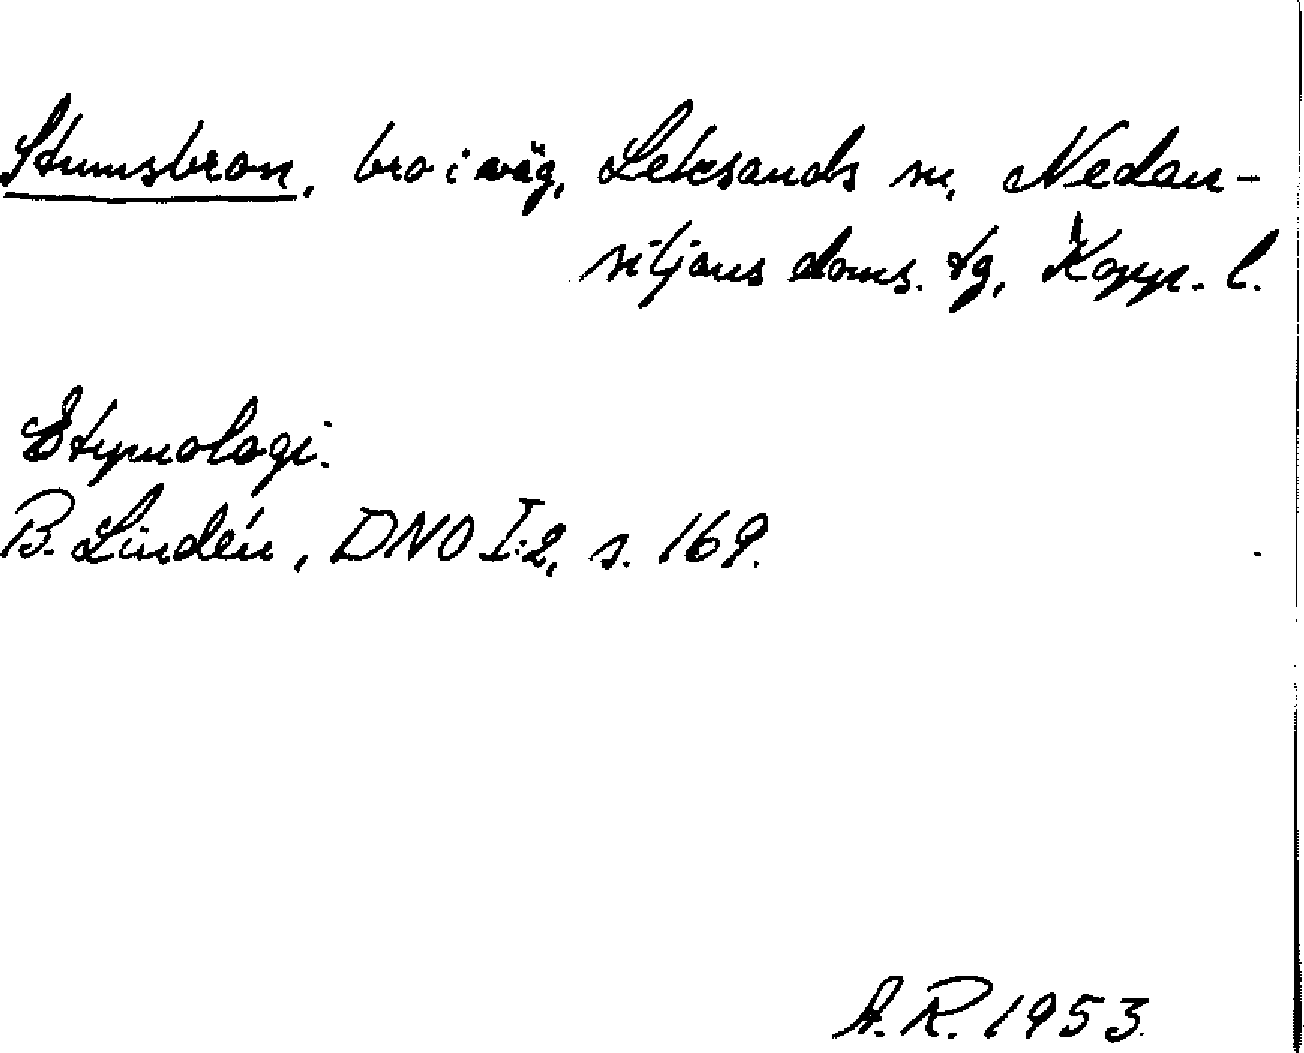 Stumsbron, bro i väg, Leksands sn, Nedan-
siljans doms. tg, Kopp. l.
Etymologi.
B. Lindén, DNO I:2, s. 169.
A. R. 1953